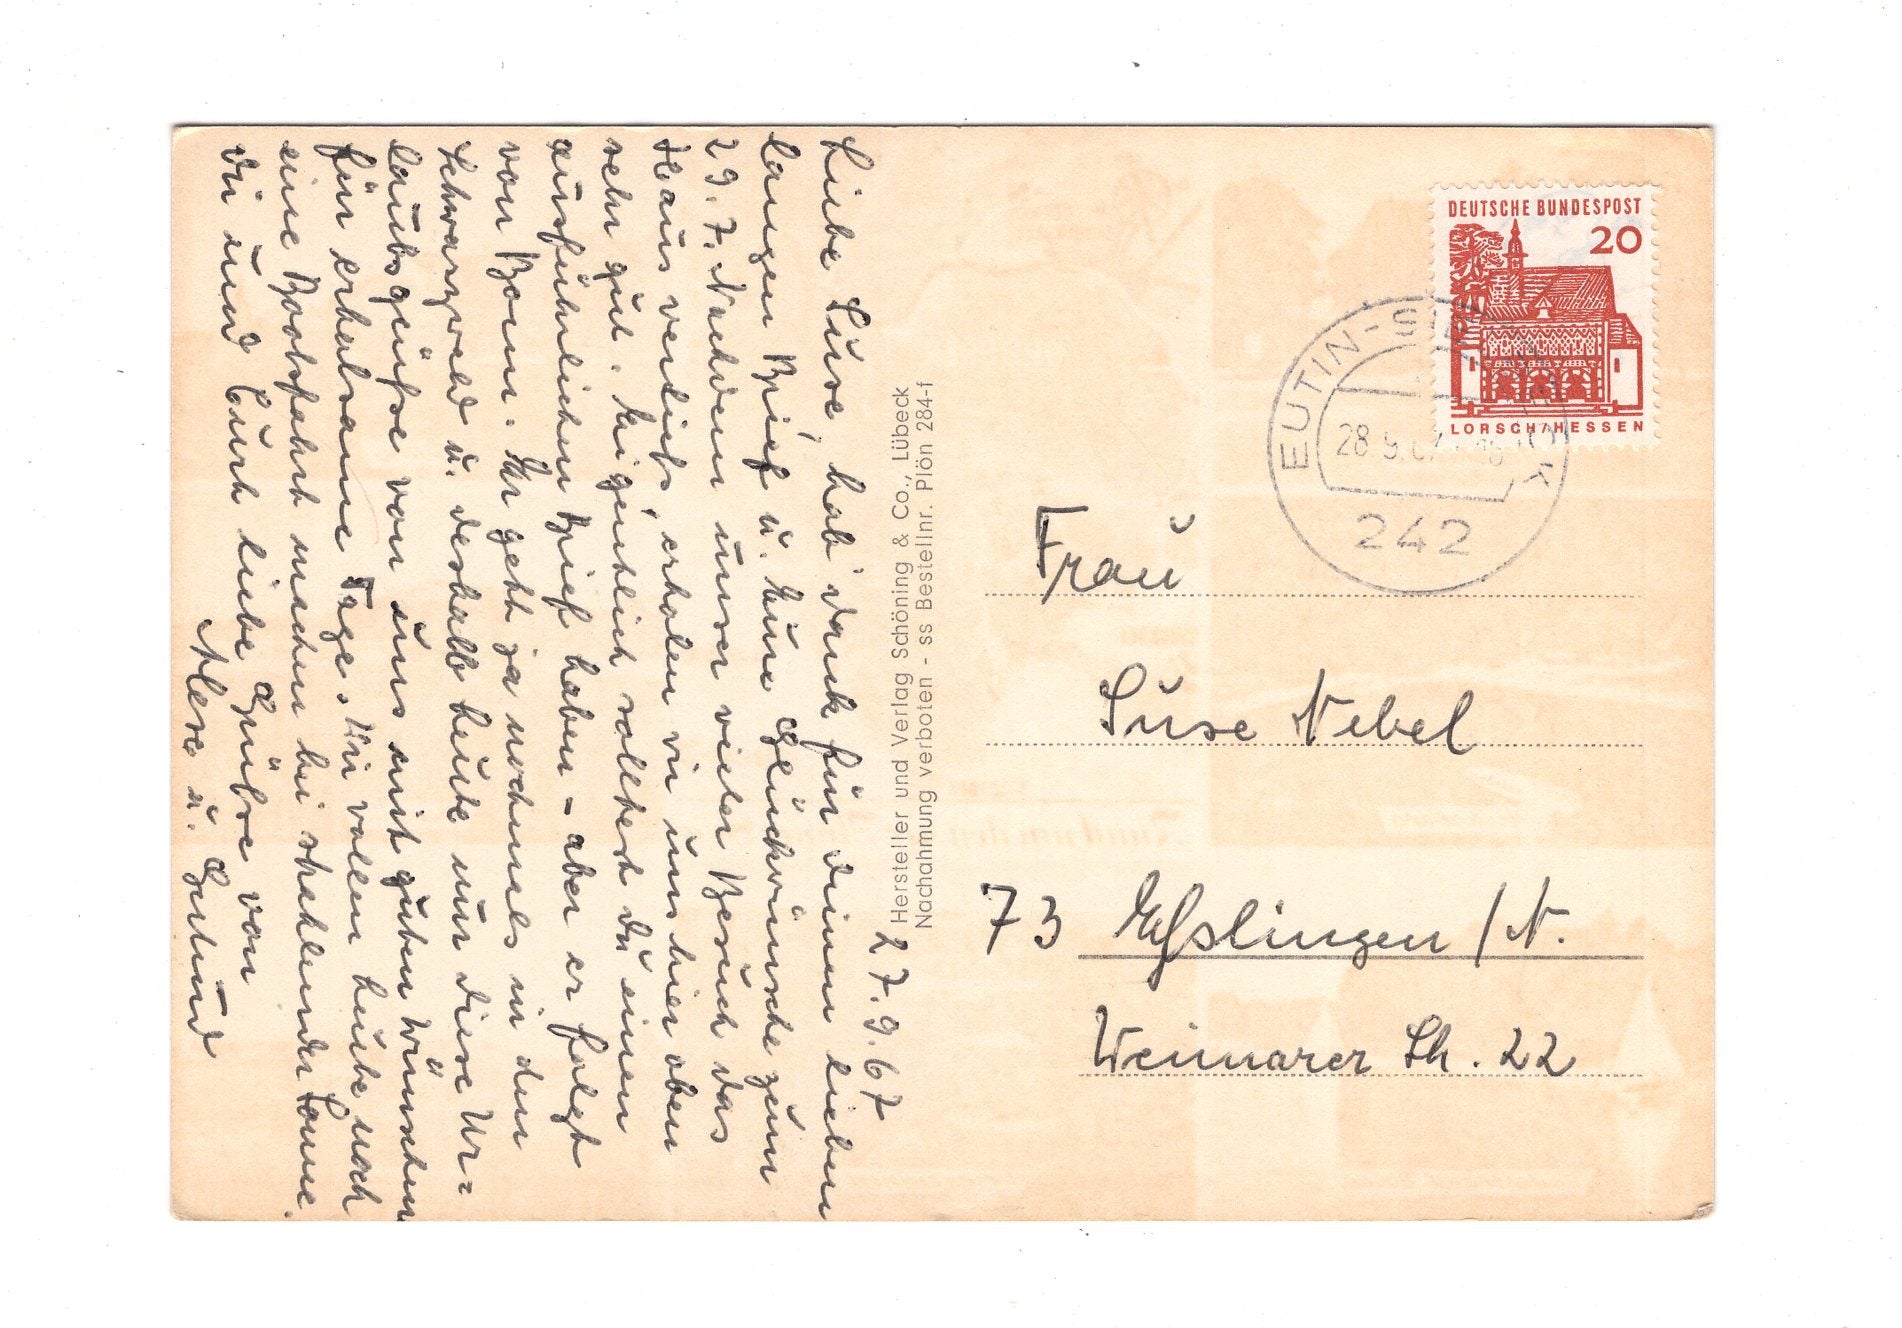 27.9.67
Liebe Suse, hab' Dank für Deinen lieben
langen Brief u. Eure Glückwünsche zum
29.7. Nachdem unser vieler Besuch das
Haus verließ, erholen wir uns hier oben
sehr gut. Eigentlich solltest Du einen
ausführlichen Brief haben – aber er folgt
von Bonn. Ihr geht ja nochmals in den
Schwarzwald u. deshalb heute nur diese Ur=
laubsgrüße von uns mit guten Wünschen
für erholsame Tage. Wir wollen heute noch
eine Bootsfahrt machen bei strahlender Sonne.
Dir und Curt liebe Grüße von
u. Gertrud
Hersteller und Verlag Schöning & Co., Lübeck
Nachahmung verboten - ss Bestellnr. Plön 284-f
DEUTSCHE BUNDESPOST
20
LORSCH/HESSEN
EUTIN-
28.9.67
242
Frau
Suse Nebel
73 Eßlingen/N.
Weimarer Str. 22